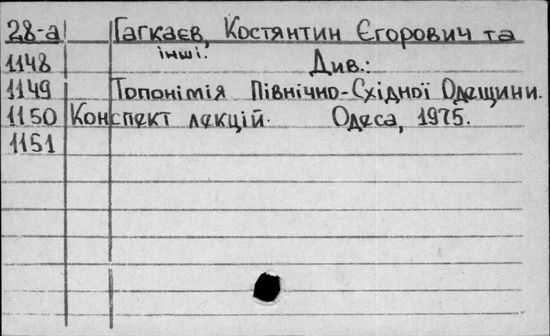 28-а Гагкаєв, Костянтин Єгорович та
інші.
1148 Див.:
1149 Топонімія Північно-Східної Одещини.
1150 Конспект лекцій. Одеса, 1975.
1151